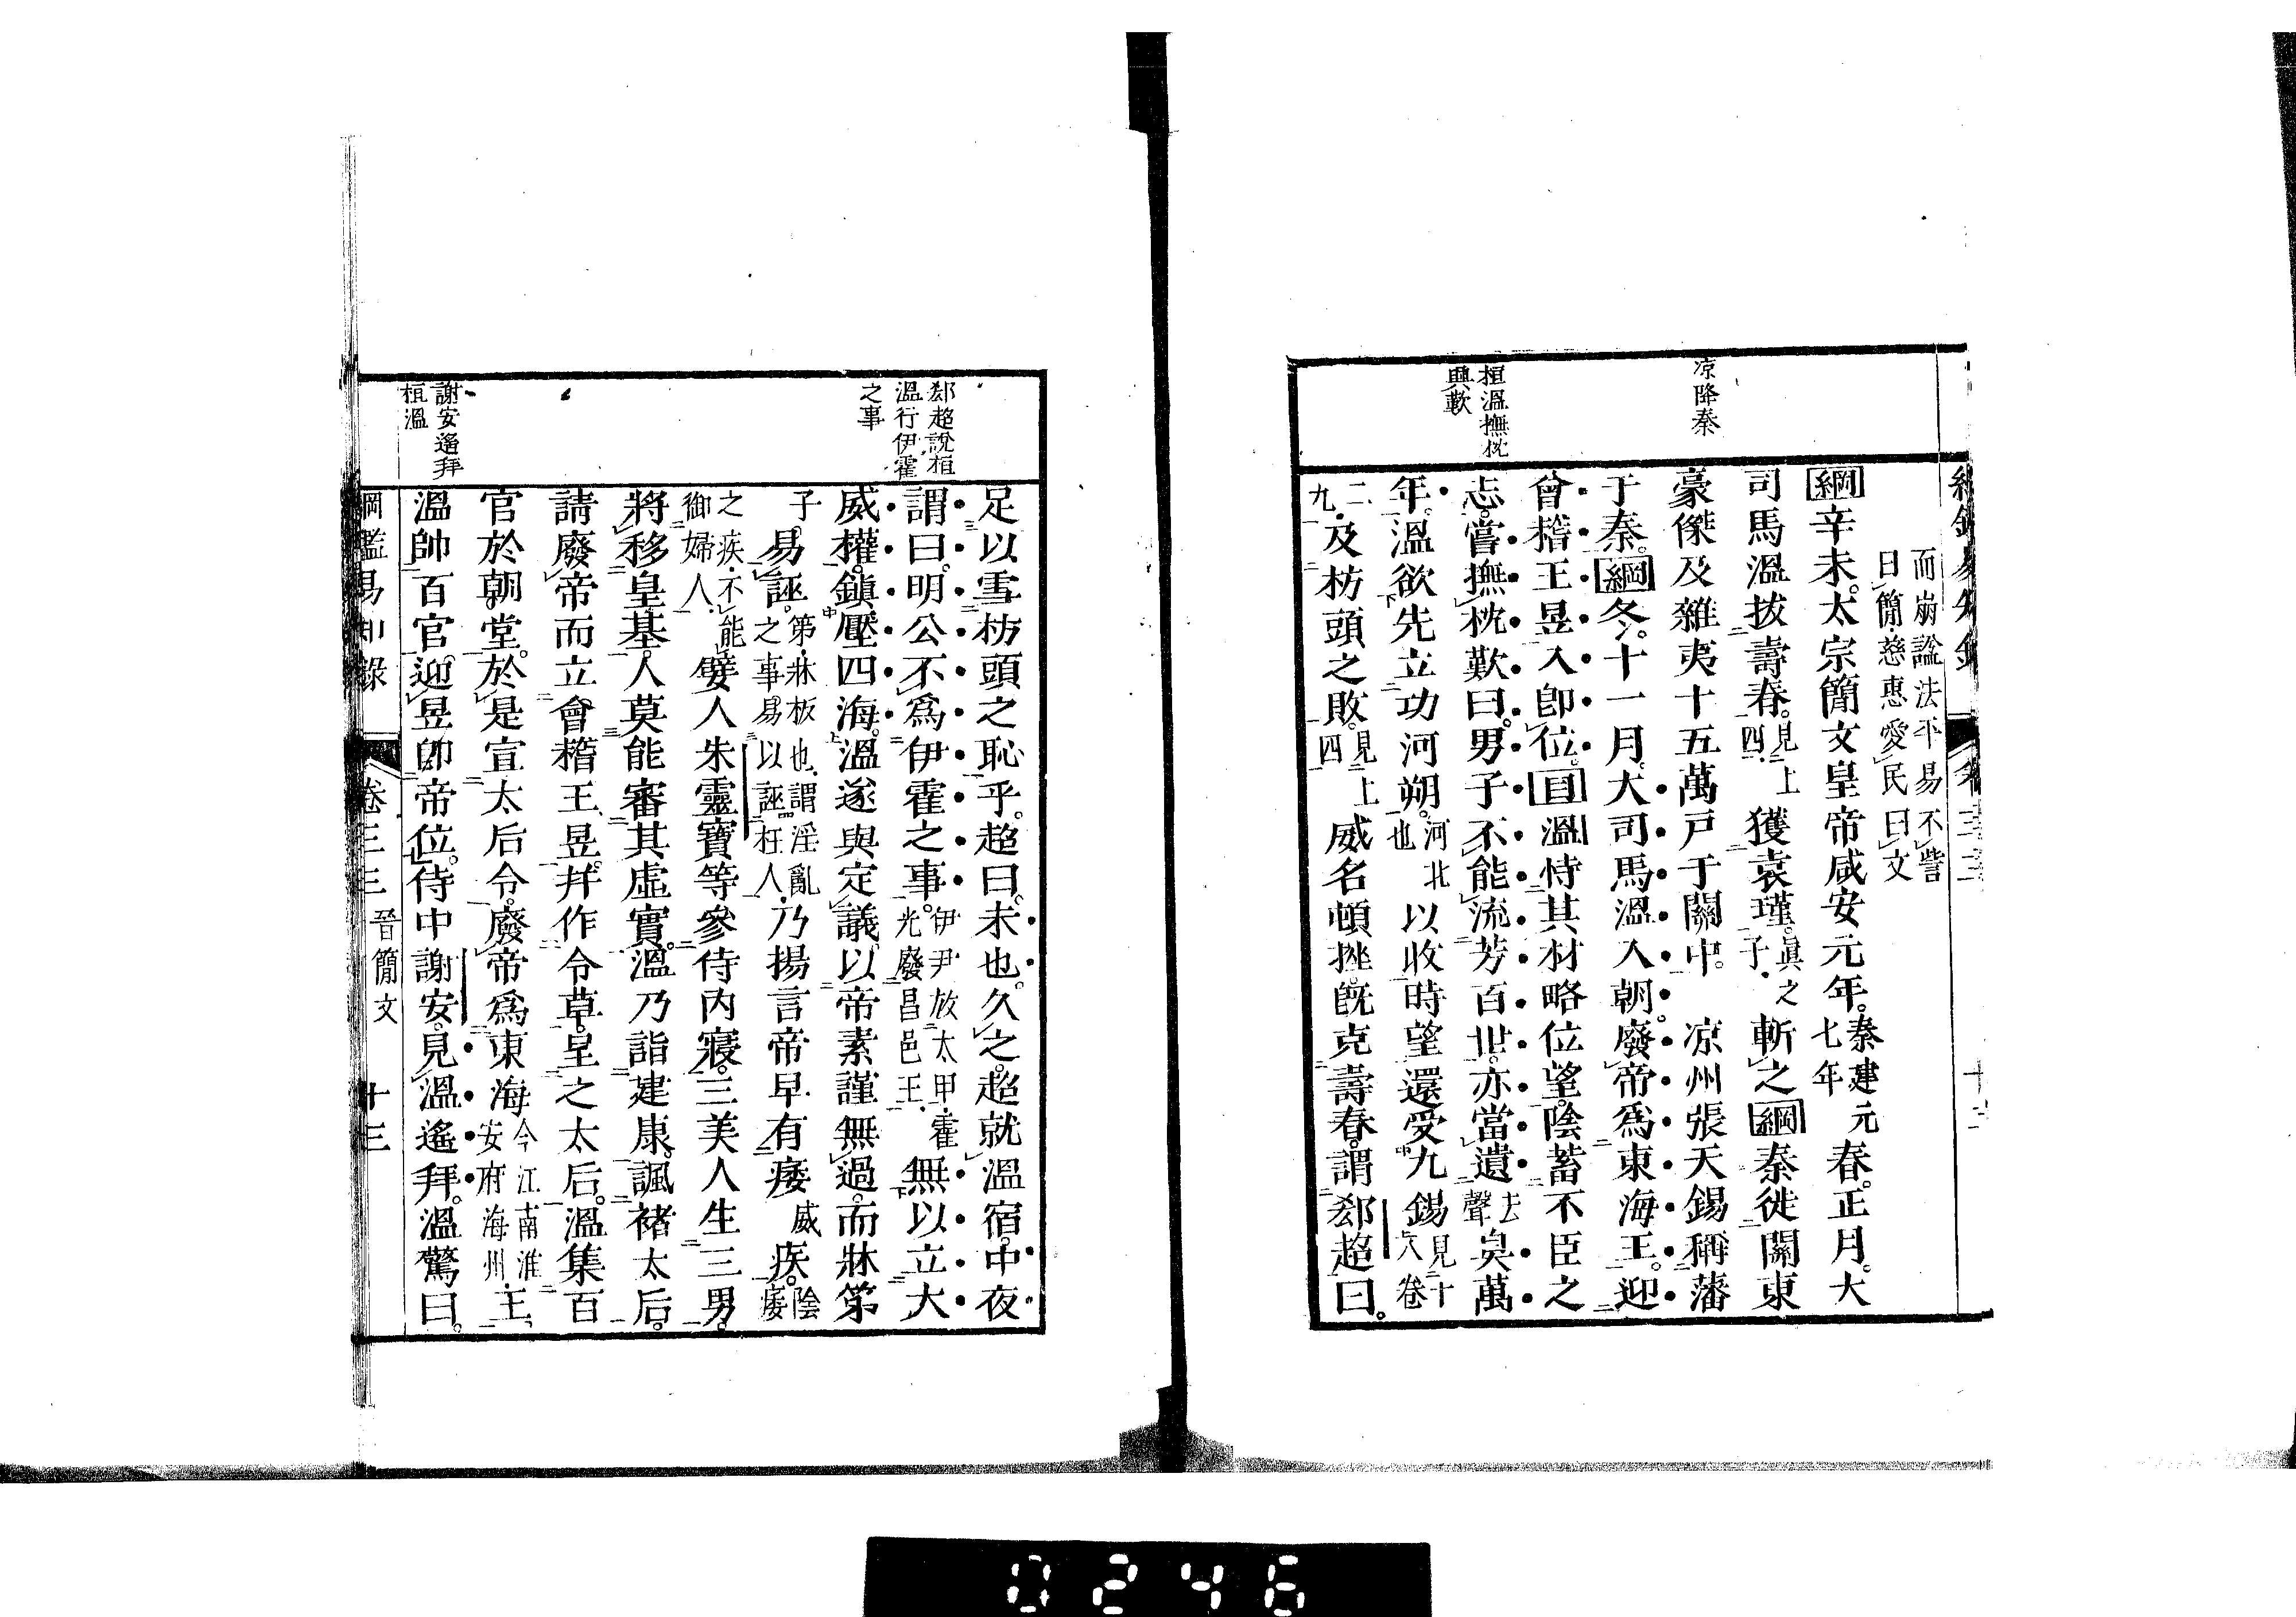 涼降秦
桓溫撫枕
興歎
而崩謚法平易不訾
曰簡慈惠愛民曰文
綱辛未太宗簡文皇帝咸安元年秦建元七年春正月大
司馬溫拔壽春見上四獲袁瑾眞之子斬之綱秦徙關東
豪傑及雜夷十五萬戸于關中涼州張天錫稱藩
于秦綱冬十一月大司馬溫入朝廢帝爲東海王迎
會稽王昱入卽位目溫恃其材略位望陰蓄不臣之
志嘗撫枕歎曰男子不能流芳百世亦當遺去聲臭萬
年溫欲先立功河朔河北也以收時望還受九錫見十八卷
二九及枋頭之敗見上四威名頓挫旣克壽春謂郄超曰
郄超說桓
溫行伊霍
之事
謝安遙拜
桓溫
足以雪枋頭之恥乎超曰未也久之超就溫宿中夜
謂曰明公不爲伊霍之事伊尹放太甲霍光廢昌邑王無以立大
威權鎭壓四海溫遂與定議以帝素謹無過而牀第
子易誣第牀板也謂淫亂之事易以誣枉人乃揚言帝早有痿威疾陰痿
之疾不能御婦人嬖人朱靈寶等參侍內寢三美人生三男
將移皇基人莫能審其虛實溫乃詣建康諷褚太后
請廢帝而立會稽王昱幷作令草呈之太后溫集百
官於朝堂於是宣太后令廢帝爲東海今江南淮安府海州王
溫帥百官迎昱卽帝位侍中謝安見溫遙拜溫驚曰
綱鑑易知錄 卷三三 晉簡文 十三
0246